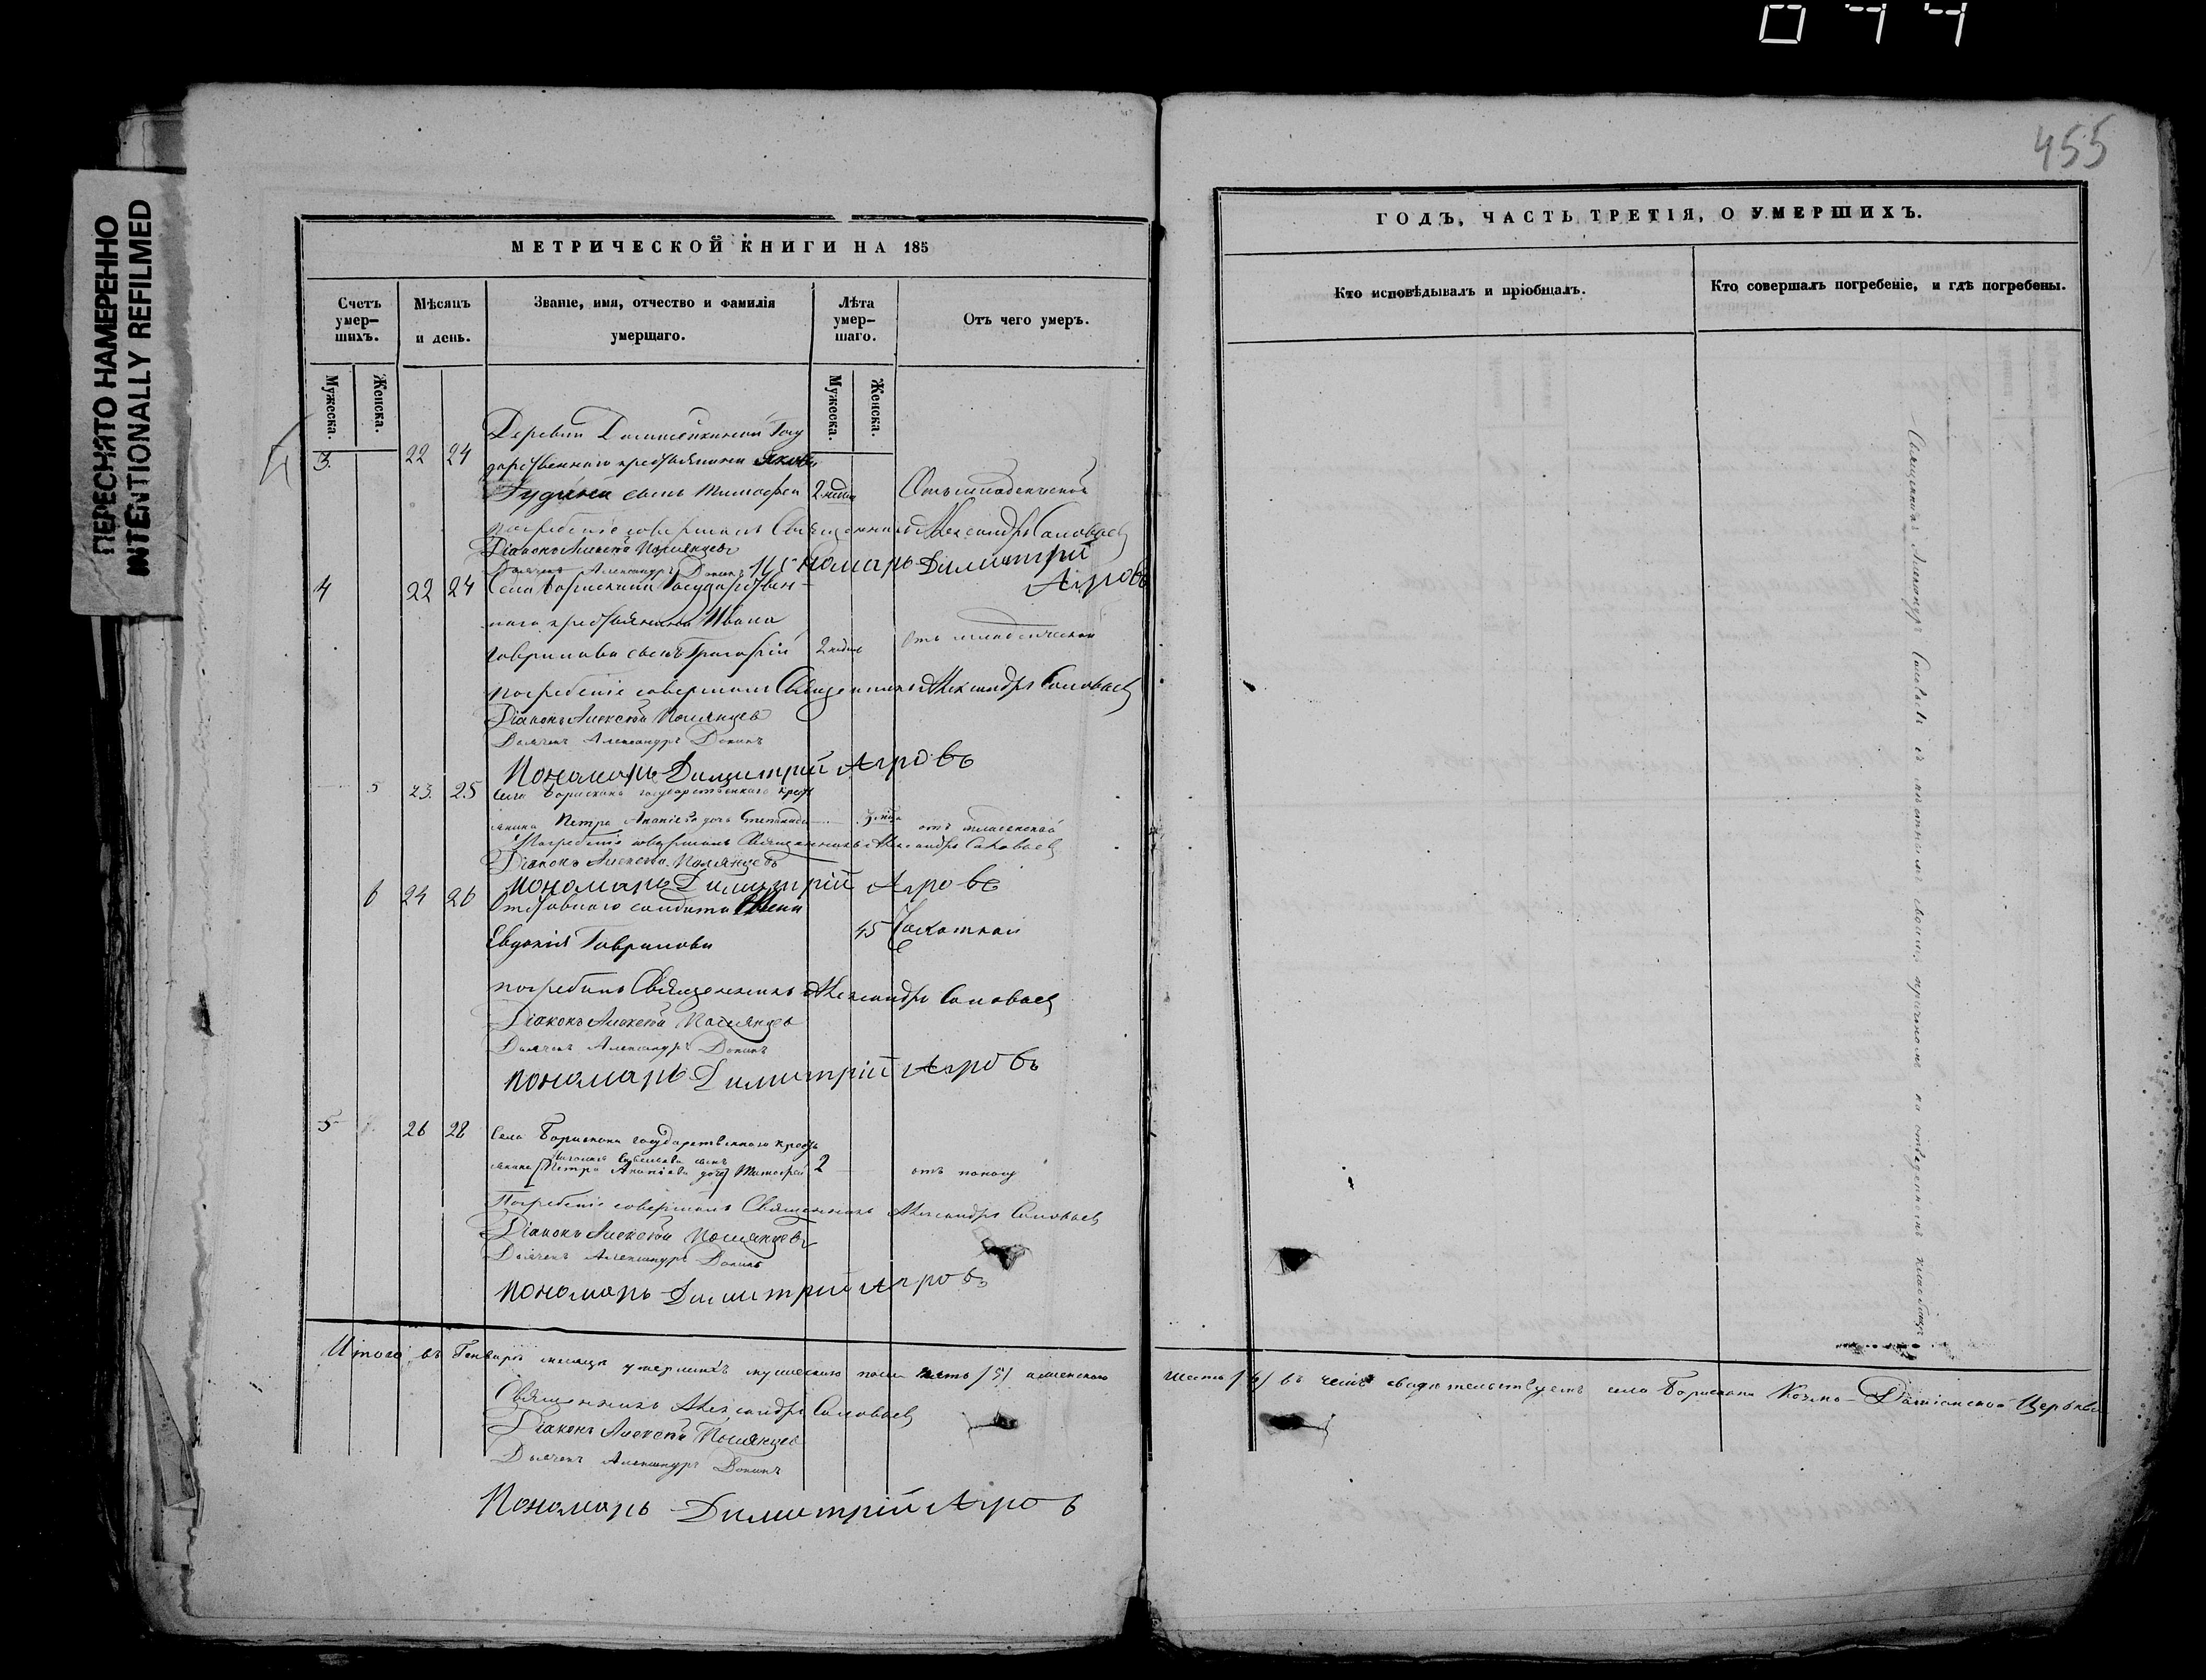 044
ПЕРЕСНЯТО НАМЕРЕННО
INTENTIONALLY REFILMED
455
МЕТРИЧЕСКОЙ КНИГИ НА 185
Счетъ умер-
шихъ.
Мѣсяцъ
и день.
Званіе, имя, отчество и фамилія
умершаго.
Лѣта
умер-
шаго.
Отъ чего умеръ.
Мужеска.
Женска.
Мужеска.
Женска.
3. 22 24 Деревни Госу
дарственнаго крестьянина Якова
сынъ Тимофей 2 недѣли Отъ младенческой
погребеніе совершалъ Священникъ Александръ Соловьевъ
Діаконъ Алексѣй
Дьячекъ Александръ Донинъ Пономарь Димитрій
Агровъ
4 22 24 Села Борискина Государствен-
наго крестьянина Ивана
Гаврилова сынъ 2 недѣли Отъ младенческой
погребеніе совершалъ Священникъ Александръ Соловьевъ
Діаконъ Алексѣй
Дьячекъ Александръ Донинъ
Пономарь Димитрій Агровъ
5 23. 25 Села Борискина государственнаго кресть
янина Петра Ананіева дочь отъ младенской
Погребеніе совершалъ Священникъ Александръ Соловьевъ
Діаконъ Алексѣй
Пономарь Димитрій Агровъ
6 24 26 Отставнаго солдата жена
Евдокія Гаврилова 45 Чахоткой
погребалъ Священникъ Александръ Соловьевъ
Діаконъ Алексѣй
Дьячекъ Александръ Донинъ
Пономарь Димитрій Агровъ
5 26 28 Села Борискина государственнаго кресть
сынъ
янина Петра Ананіева дочь Тимофей 2 отъ поносу
Погребеніе совершалъ Священникъ Александръ Соловьевъ
Діаконъ Алексѣй
Дьячекъ Александръ Донинъ
Пономарь Димитрій Агровъ
Итого въ Генварѣ месяцѣ умершихъ мужескаго пола пять /5/ а женскаго
Священникъ Александръ Соловьевъ
Діаконъ Алексѣй
Дьячекъ Александръ Донинъ
Пономарь Димитрій Агровъ
ГОДЪ, ЧАСТЬ ТРЕТІЯ, О УМЕРШИХЪ.
Кто исповѣдывалъ и пріобщалъ.
Кто совершалъ погребеніе, и гдѣ погребены.
Священникъ Александръ Соловьевъ съ причтомъ на отведенномъ кладбищѣ
шесть /6/ въ чемъ свидѣтельствуемъ села Борискина Козмо-Даміанской Церкви